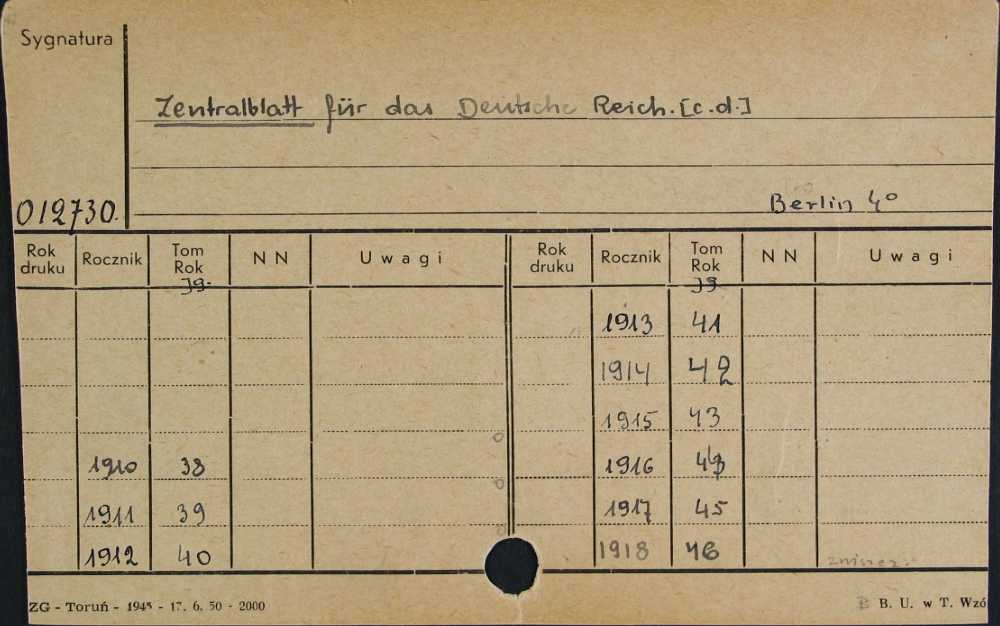 Sygnatura
Zentralblatt für das Deutsche Reich. [c.d.]
012730.
Berlin 4°
Rok druku Rocznik Tom Rok Jg. N N Uwagi Rok druku Rocznik Tom Rok Jg N N Uwagi
1913 41
1914 42
1915 43
1910 38 1916 44
1911 39 1917 45
1912 40 1918 46
ZG - Toruń - 1945 - 17. 6. 50 - 2000 B. U. w T. Wzó